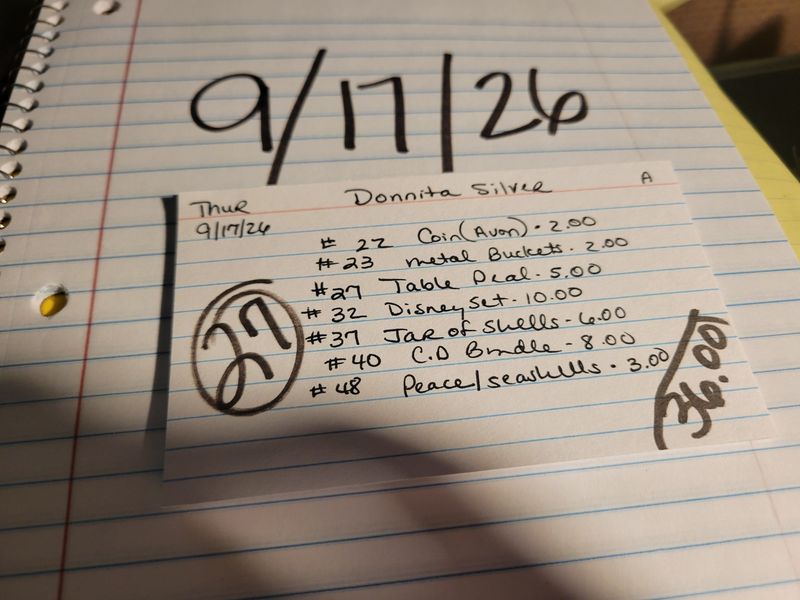 9/17/26
Thur Donnita Silver A
9/17/26
# 22 Coin (Avon) · 2.00
# 23 metal Buckets · 2.00
# 27 Table Deal - 5.00
# 32 Disney set - 10.00
# 37 Jar of Shells - 6.00
# 40 C.D Bundle - 8.00
# 48 Peace/seashells · 3.00
27
36.00